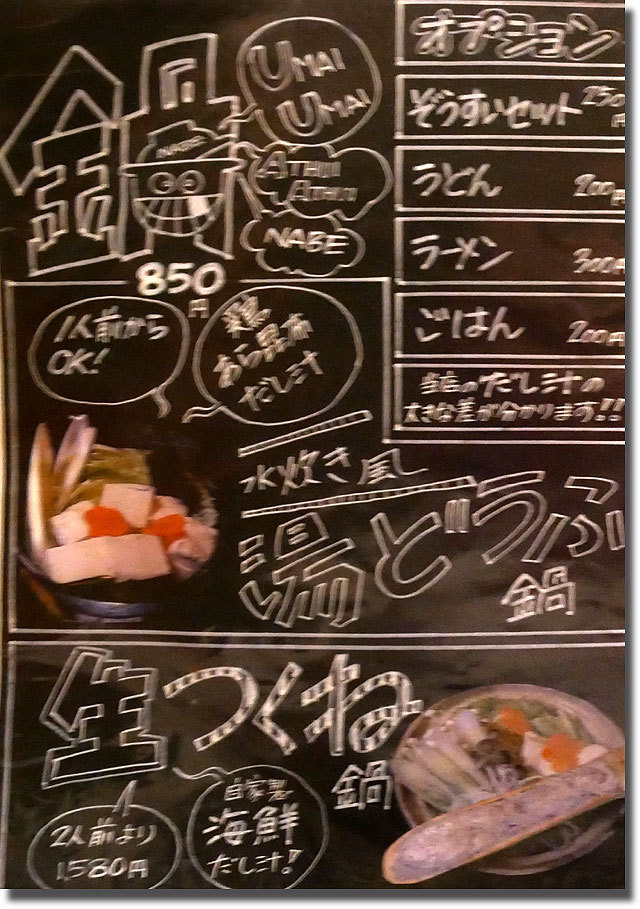 鍋
NABE
UMAI
UMAI
ATHUI
ATHUI
NABE
オプション
ぞうすいセット 250円
うどん 200円
ラーメン 300円
ごはん 200円
当店のだし汁の
大きな差が分かります!!
850円
1人前から
OK!
鶏
あら昆布
だし汁
水炊き風
湯どうふ
鍋
生つくね
鍋
2人前より
1,580円
自家製
海鮮
だし汁!